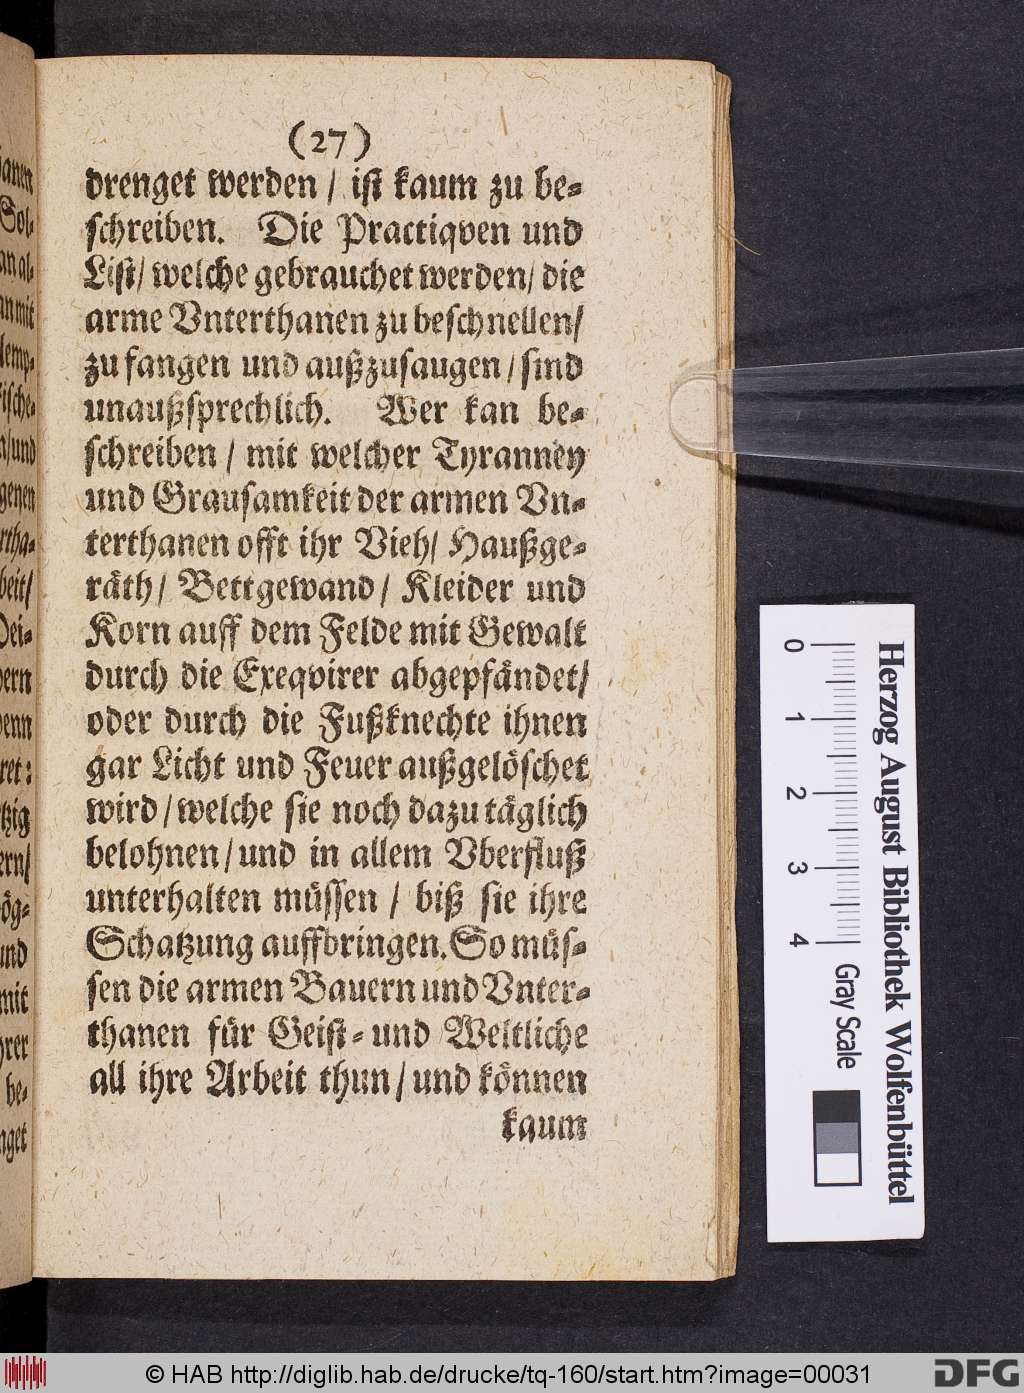 (27)
drenget werden / iſt kaum zu be-
ſchreiben. Die Practiqven und
Liſt/ welche gebrauchet werden/ die
arme Vnterthanen zu beſchnellen/
zu fangen und außzuſaugen / ſind
unaußſprechlich. Wer kan be-
ſchreiben / mit welcher Tyranney
und Grauſamkeit der armen Vn-
terthanen offt ihr Vieh/ Haußge-
räth/ Bettgewand/ Kleider und
Korn auff dem Felde mit Gewalt
durch die Exeqvirer abgepfändet/
oder durch die Fußknechte ihnen
gar Licht und Feuer außgelöſchet
wird / welche ſie noch dazu täglich
belohnen / und in allem Vberfluß
unterhalten müſſen / biß ſie ihre
Schatzung auffbringen. So müſ-
ſen die armen Bauern und Vnter-
thanen für Geiſt- und Weltliche
all ihre Arbeit thun / und können
kaum
0 1 2 3 4 Gray Scale
Herzog August Bibliothek Wolfenbüttel
© HAB http://diglib.hab.de/drucke/tq-160/start.htm?image=00031
DFG